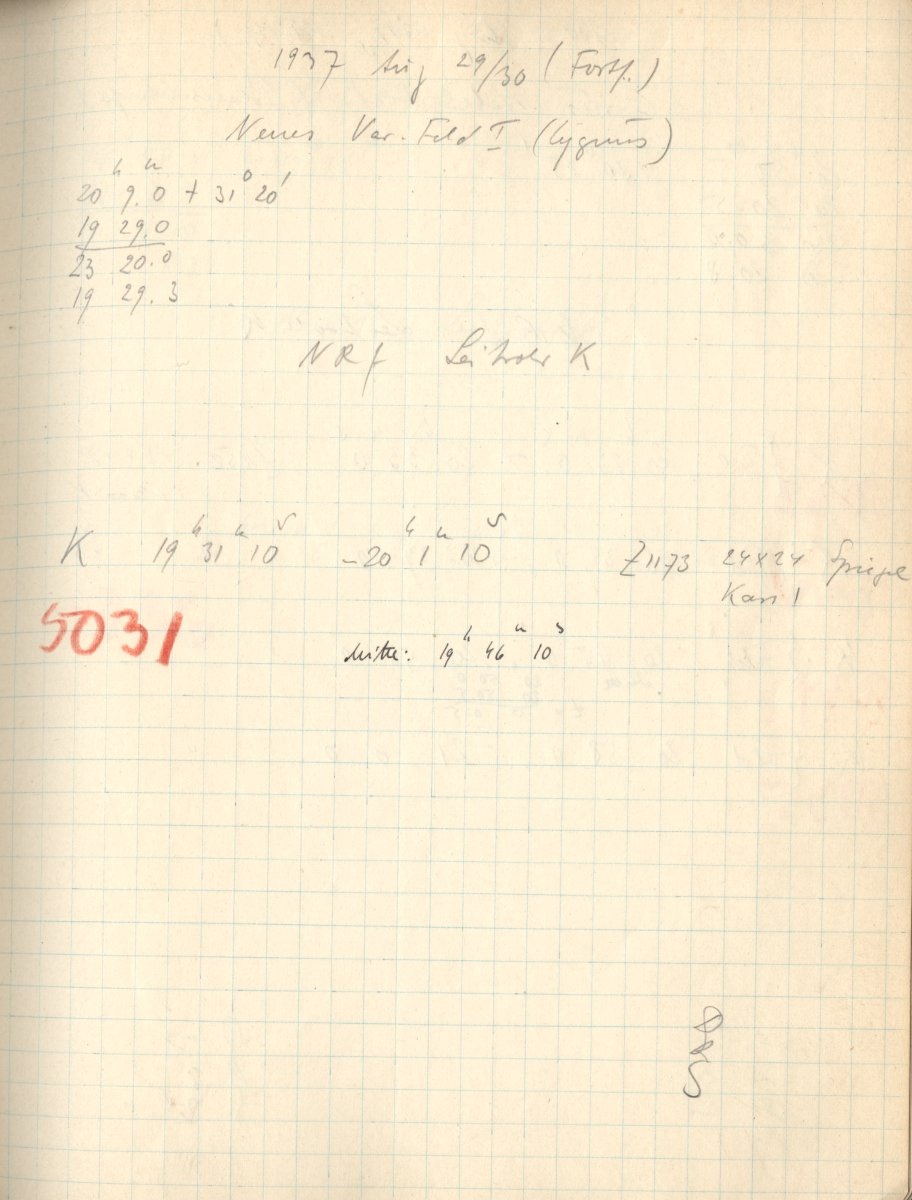 1937 Aug 29/30 (Forts.)
Neues Var. Feld I (Cygnus)
20ʰ 9.ᵐ0 + 31° 20'
19 29.0
23 20.0
19 29.3
NRf Leitrohr K
K 19ʰ 31ᵐ 10ˢ – 20ʰ 1ᵐ 10ˢ Z1173 24x24 Spiegel
Kass 1
5031
Mitte: 19ʰ 46ᵐ 10ˢ